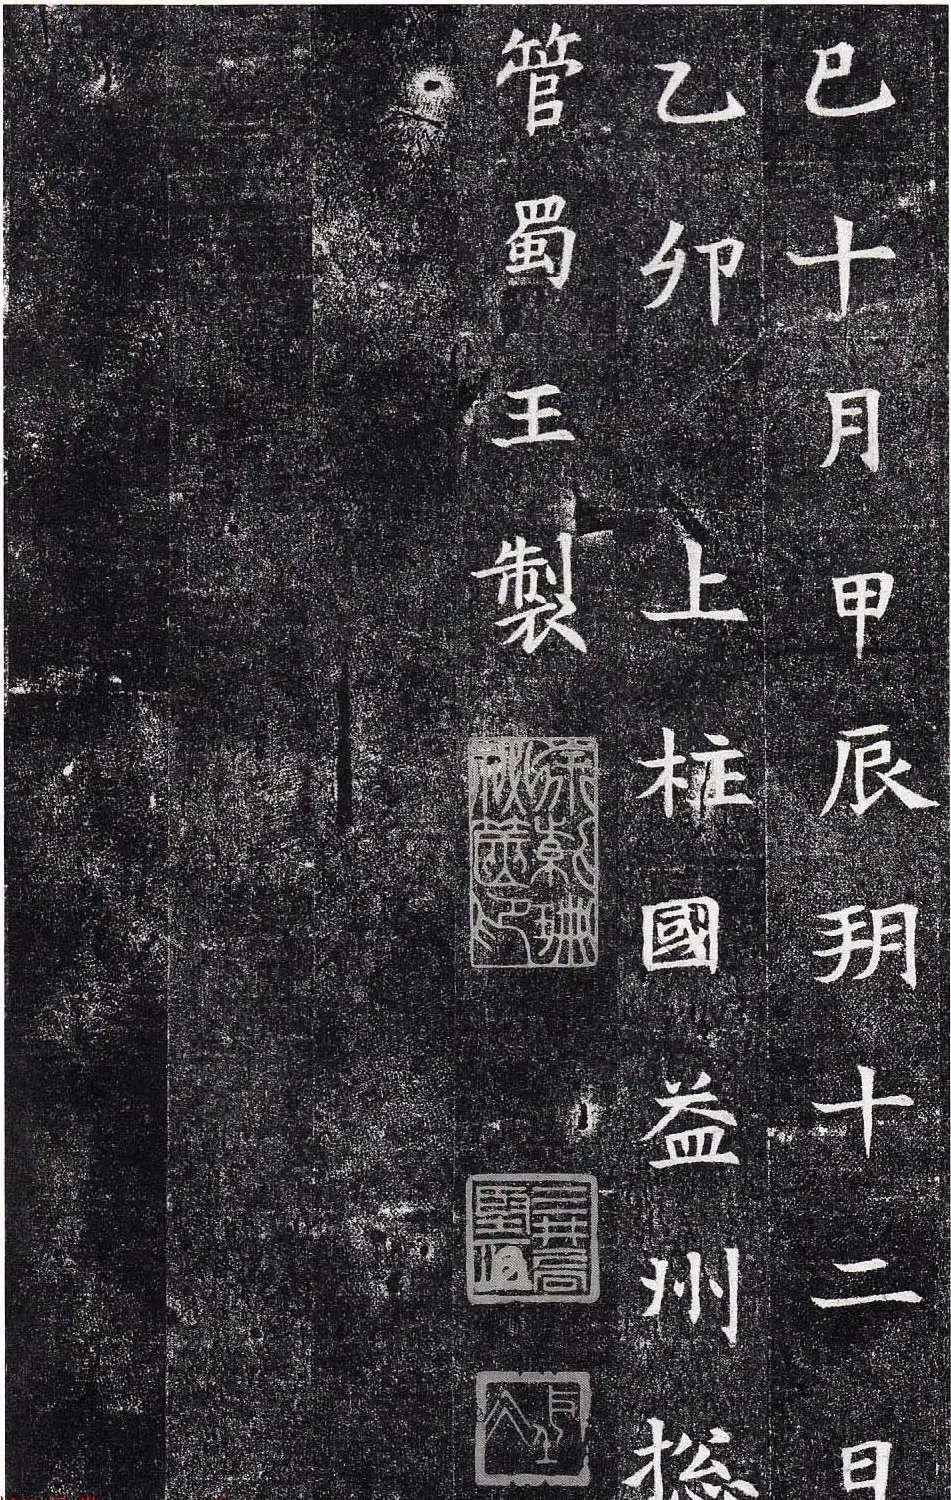 巳十月甲辰朔十二日
乙卯上柱國益州摠
管蜀王製